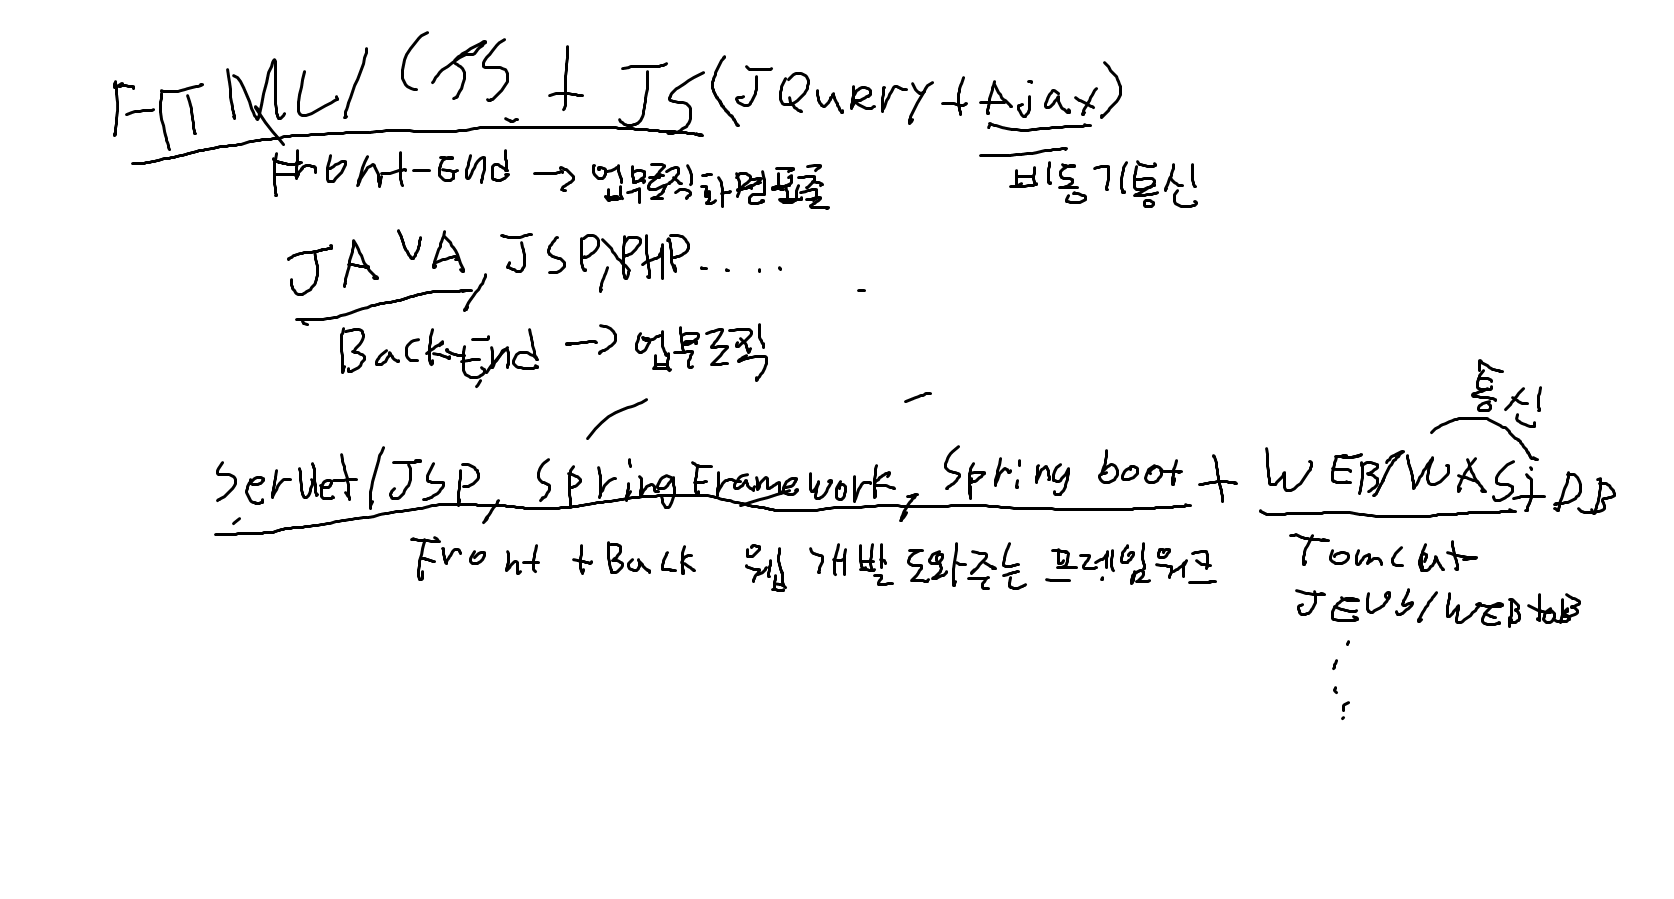 HTML/CSS + JS(JQuery+Ajax)
Front-End → 업무로직화면표출 비동기통신
JAVA, JSP, PHP....
Back-End → 업무로직
통신
Servlet/JSP, SpringFramework, Spring boot + WEB/WAS + DB
Front + Back 웹 개발 도와주는 프레임워크 Tomcat
JEUS/WEBtoB